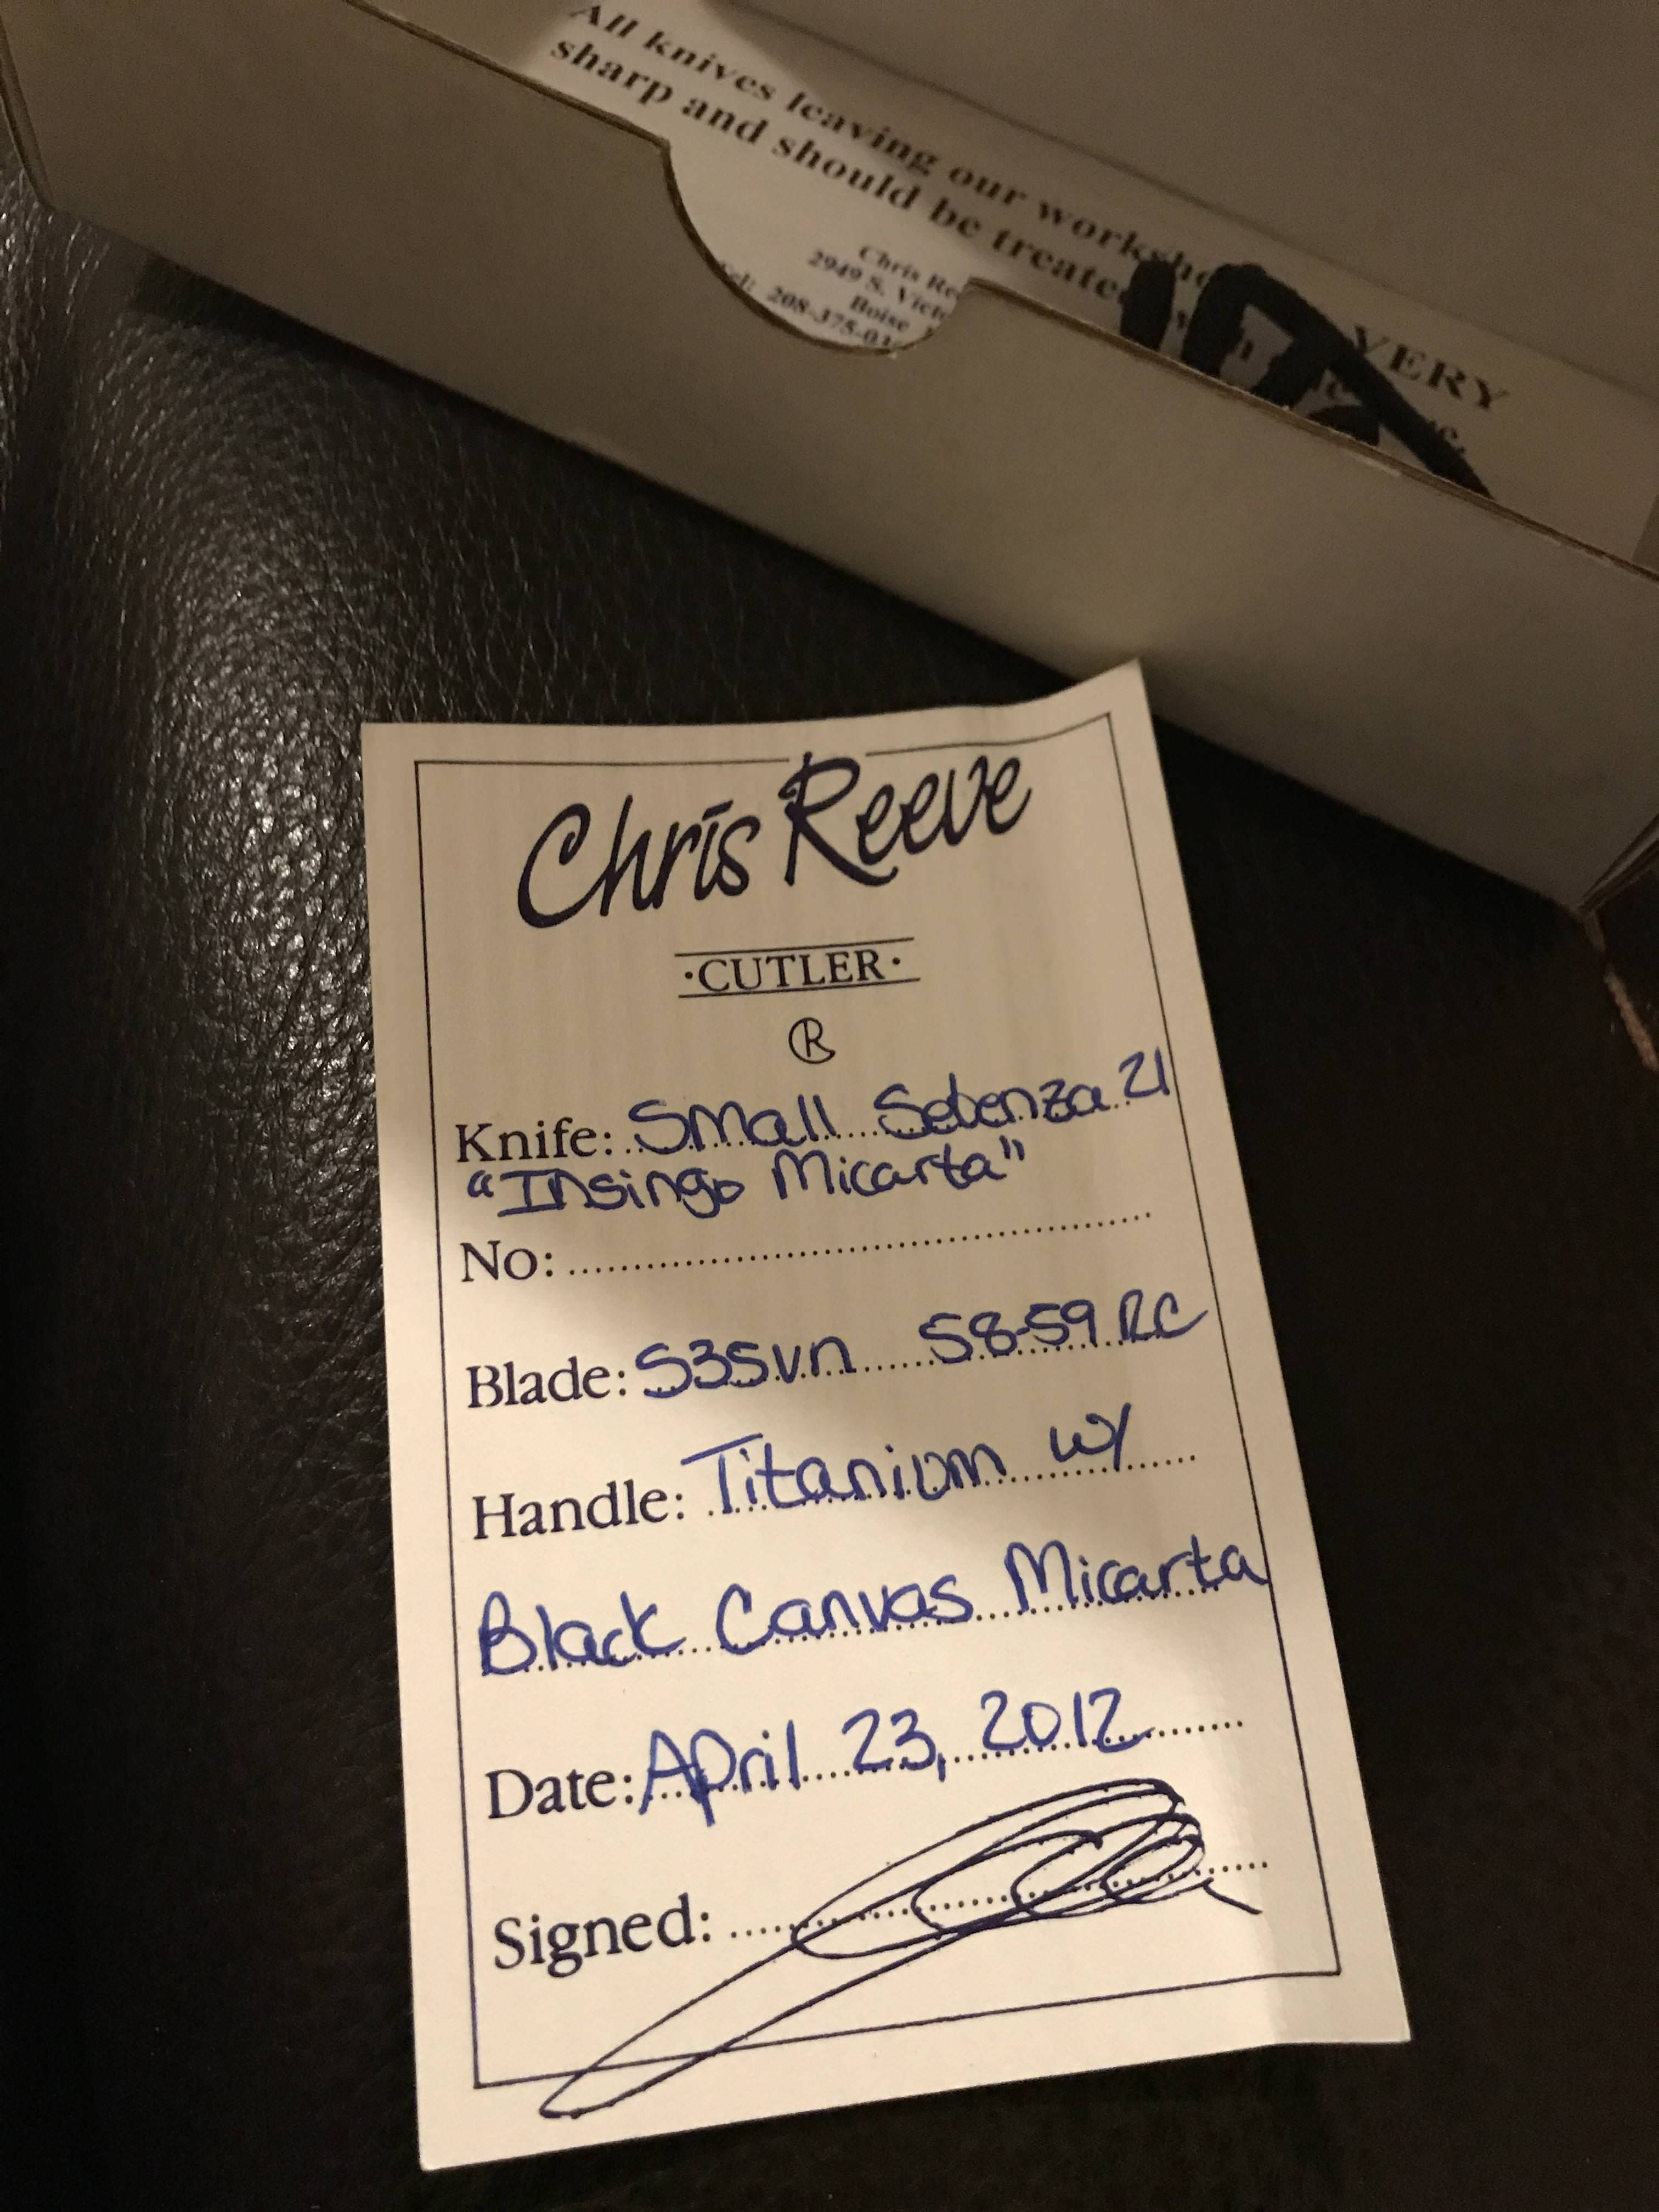 All knives leaving our
sharp and should be
VERY
Chris
2949 S.
Boise
208-375-
Chris Reeve
·CUTLER·
R
Knife: Small Sebenza 21
"Insingo Micarta"
No:
Blade: S35vn 58-59 RC
Handle: Titanium w/
Black Canvas Micarta
Date: April 23, 2012
Signed: